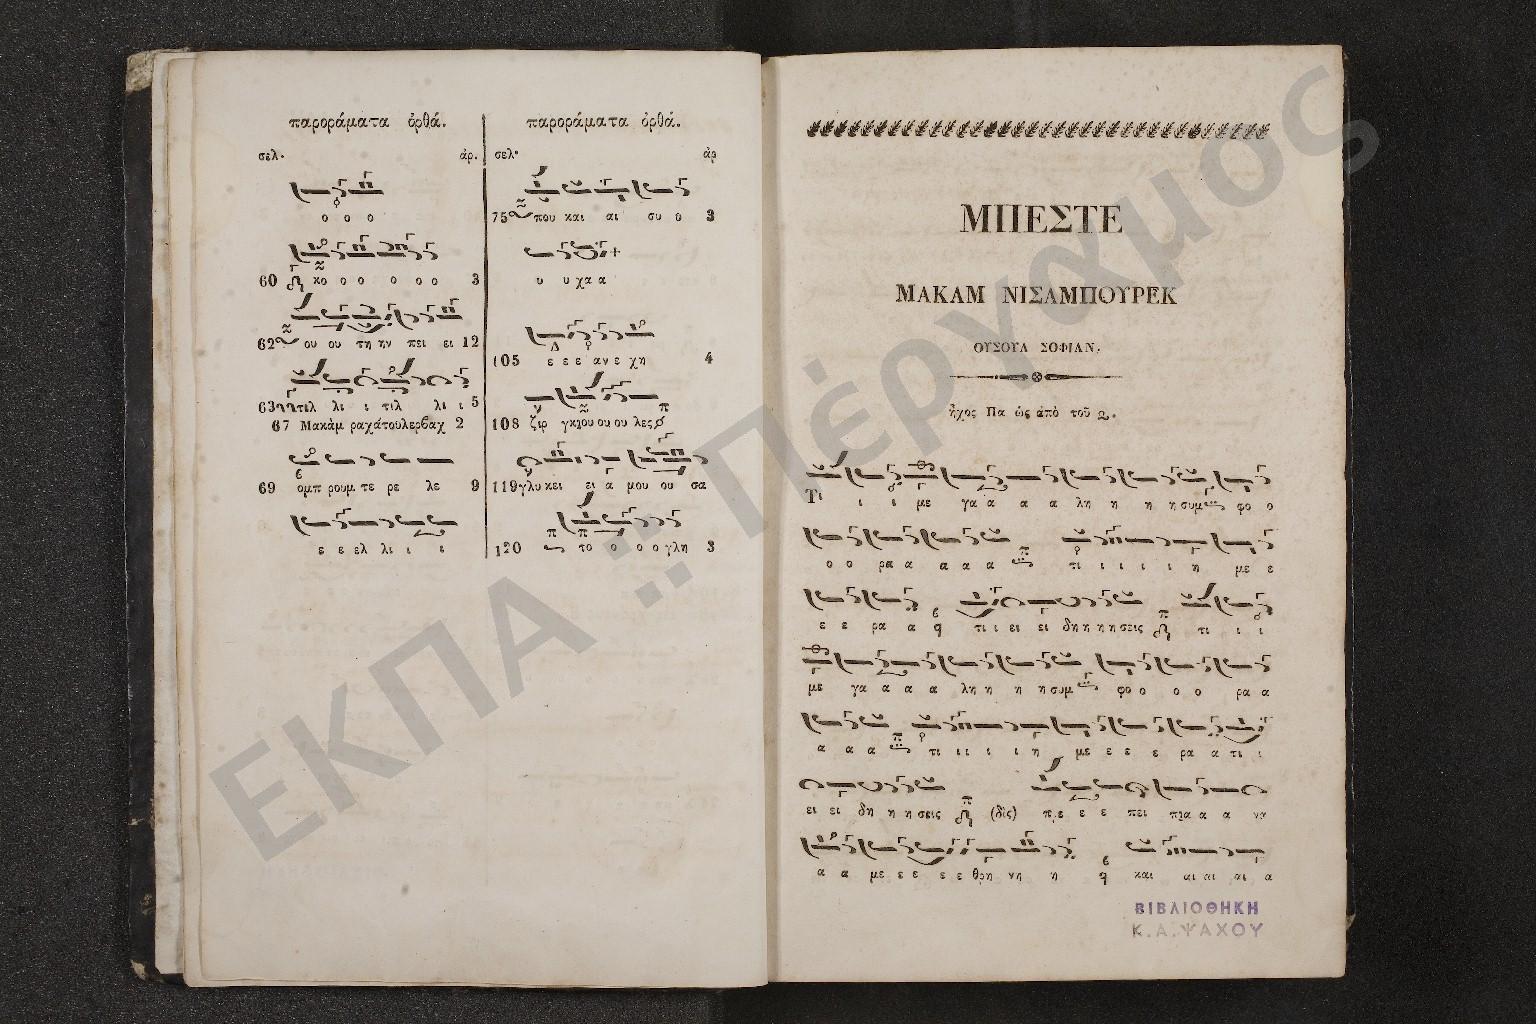 παροράματα ὀρθά.
σελ. ἀρ.
ο ο ο
60 κο ο ο ο ο ο 3
62 ου ου τη ην πει ει 12
63 τιλ λι ι τιλ λι ι 5
67 Μακὰμ ραχάτουλερβαχ 2
69 ομπ ρουμ τε ρε λε 9
ε ε ελ λι ι ι
παροράματα ὀρθά.
σελ. ἀρ
75 που και αι συ ο 3
υ υ χα α
105 ε ε ε αν ε χη 4
108 ζιρ γκιου ου ου λες
119 γλυ κει ει α μου ου σα
120 το ο ο ο γλη 3
ΜΠΕΣΤΕ
ΜΑΚΑΜ ΝΙΣΑΜΠΟΥΡΕΚ
ΟΥΣΟΥΛ ΣΟΦΙΑΝ.
ἦχος Πα ὡς ἀπὸ τοῦ
Τι ι ι με γα α α α λη η η η συμ φο ο
ο ο ρα α α α α τι ι ι ι ι η με ε
ε ε ρα α τι ι ει ει δη η η η σεις τι ι ι
με γα α α α λη η η η συμ φο ο ο ο ρα α
α α α τι ι ι ι ι η με ε ε ε ρα α τι ι
ει ει δη η η η σεις (δὶς) π ε ε ε πει πια α α να
α α με ε ε ε ε θρη νη η και αι αι αι α
ΒΙΒΛΙΟΘΗΚΗ
Κ.Α.ΨΑΧΟΥ
ΕΚΠΑ :: Πέργαμος